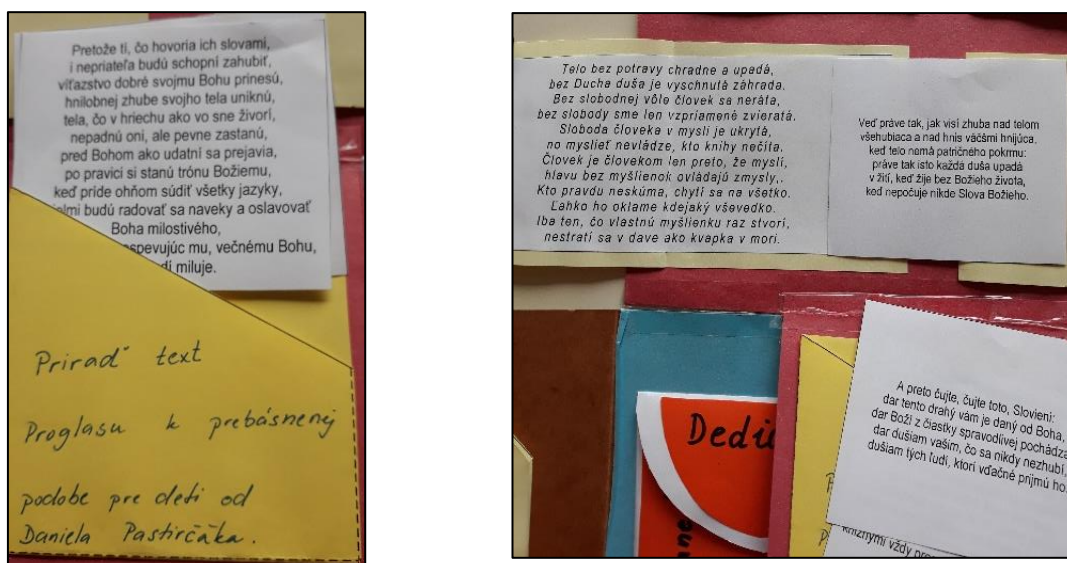 Pretože tí, čo hovoria ich slovami,
i nepriateľa budú schopní zahubiť,
víťazstvo dobré svojmu Bohu prinesú,
hnilobnej zhube svojho tela uniknú,
tela, čo v hriechu ako vo sne živorí,
nepadnú oni, ale pevne zastanú,
pred Bohom ako udatní sa prejavia,
po pravici si stanú trónu Božiemu,
keď príde ohňom súdiť všetky jazyky,
budú radovať sa naveky a oslavovať
Boha milostivého,
mu, večnému Bohu,
miluje.
Priraď text
Proglasu k prebásnenej
podobe pre deti od
Daniela Pastirčáka.
Telo bez potravy chradne a upadá,
bez Ducha duša je vyschnutá záhrada.
Bez slobodnej vôle človek sa neráta,
bez slobody sme len vzpriamené zvieratá.
Sloboda človeka v mysli je ukrytá,
no myslieť nevládze, kto knihy nečíta.
Človek je človekom len preto, že myslí,
hlavu bez myšlienok ovládajú zmysly,.
Kto pravdu neskúma, chytí sa na všetko.
Ľahko ho oklame kdejaký vševedko.
Iba ten, čo vlastnú myšlienku raz stvorí,
nestratí sa v dave ako kvapka v mori.
Veď práve tak, jak visí zhuba nad telom
všehubiaca a nad hnis väčšmi hnijúca,
keď telo nemá patričného pokrmu:
práve tak isto každá duša upadá
v žití, keď žije bez Božieho života,
keď nepočuje nikde Slova Božieho.
Dedi
A preto čujte, čujte toto, Slovieni:
dar tento drahý vám je daný od Boha,
dar Boží z čiastky spravodlivej pochádza
dar dušiam vašim, čo sa nikdy nezhubí,
dušiam tých ľudí, ktorí vďačne prijmú ho.
knižnými vždy